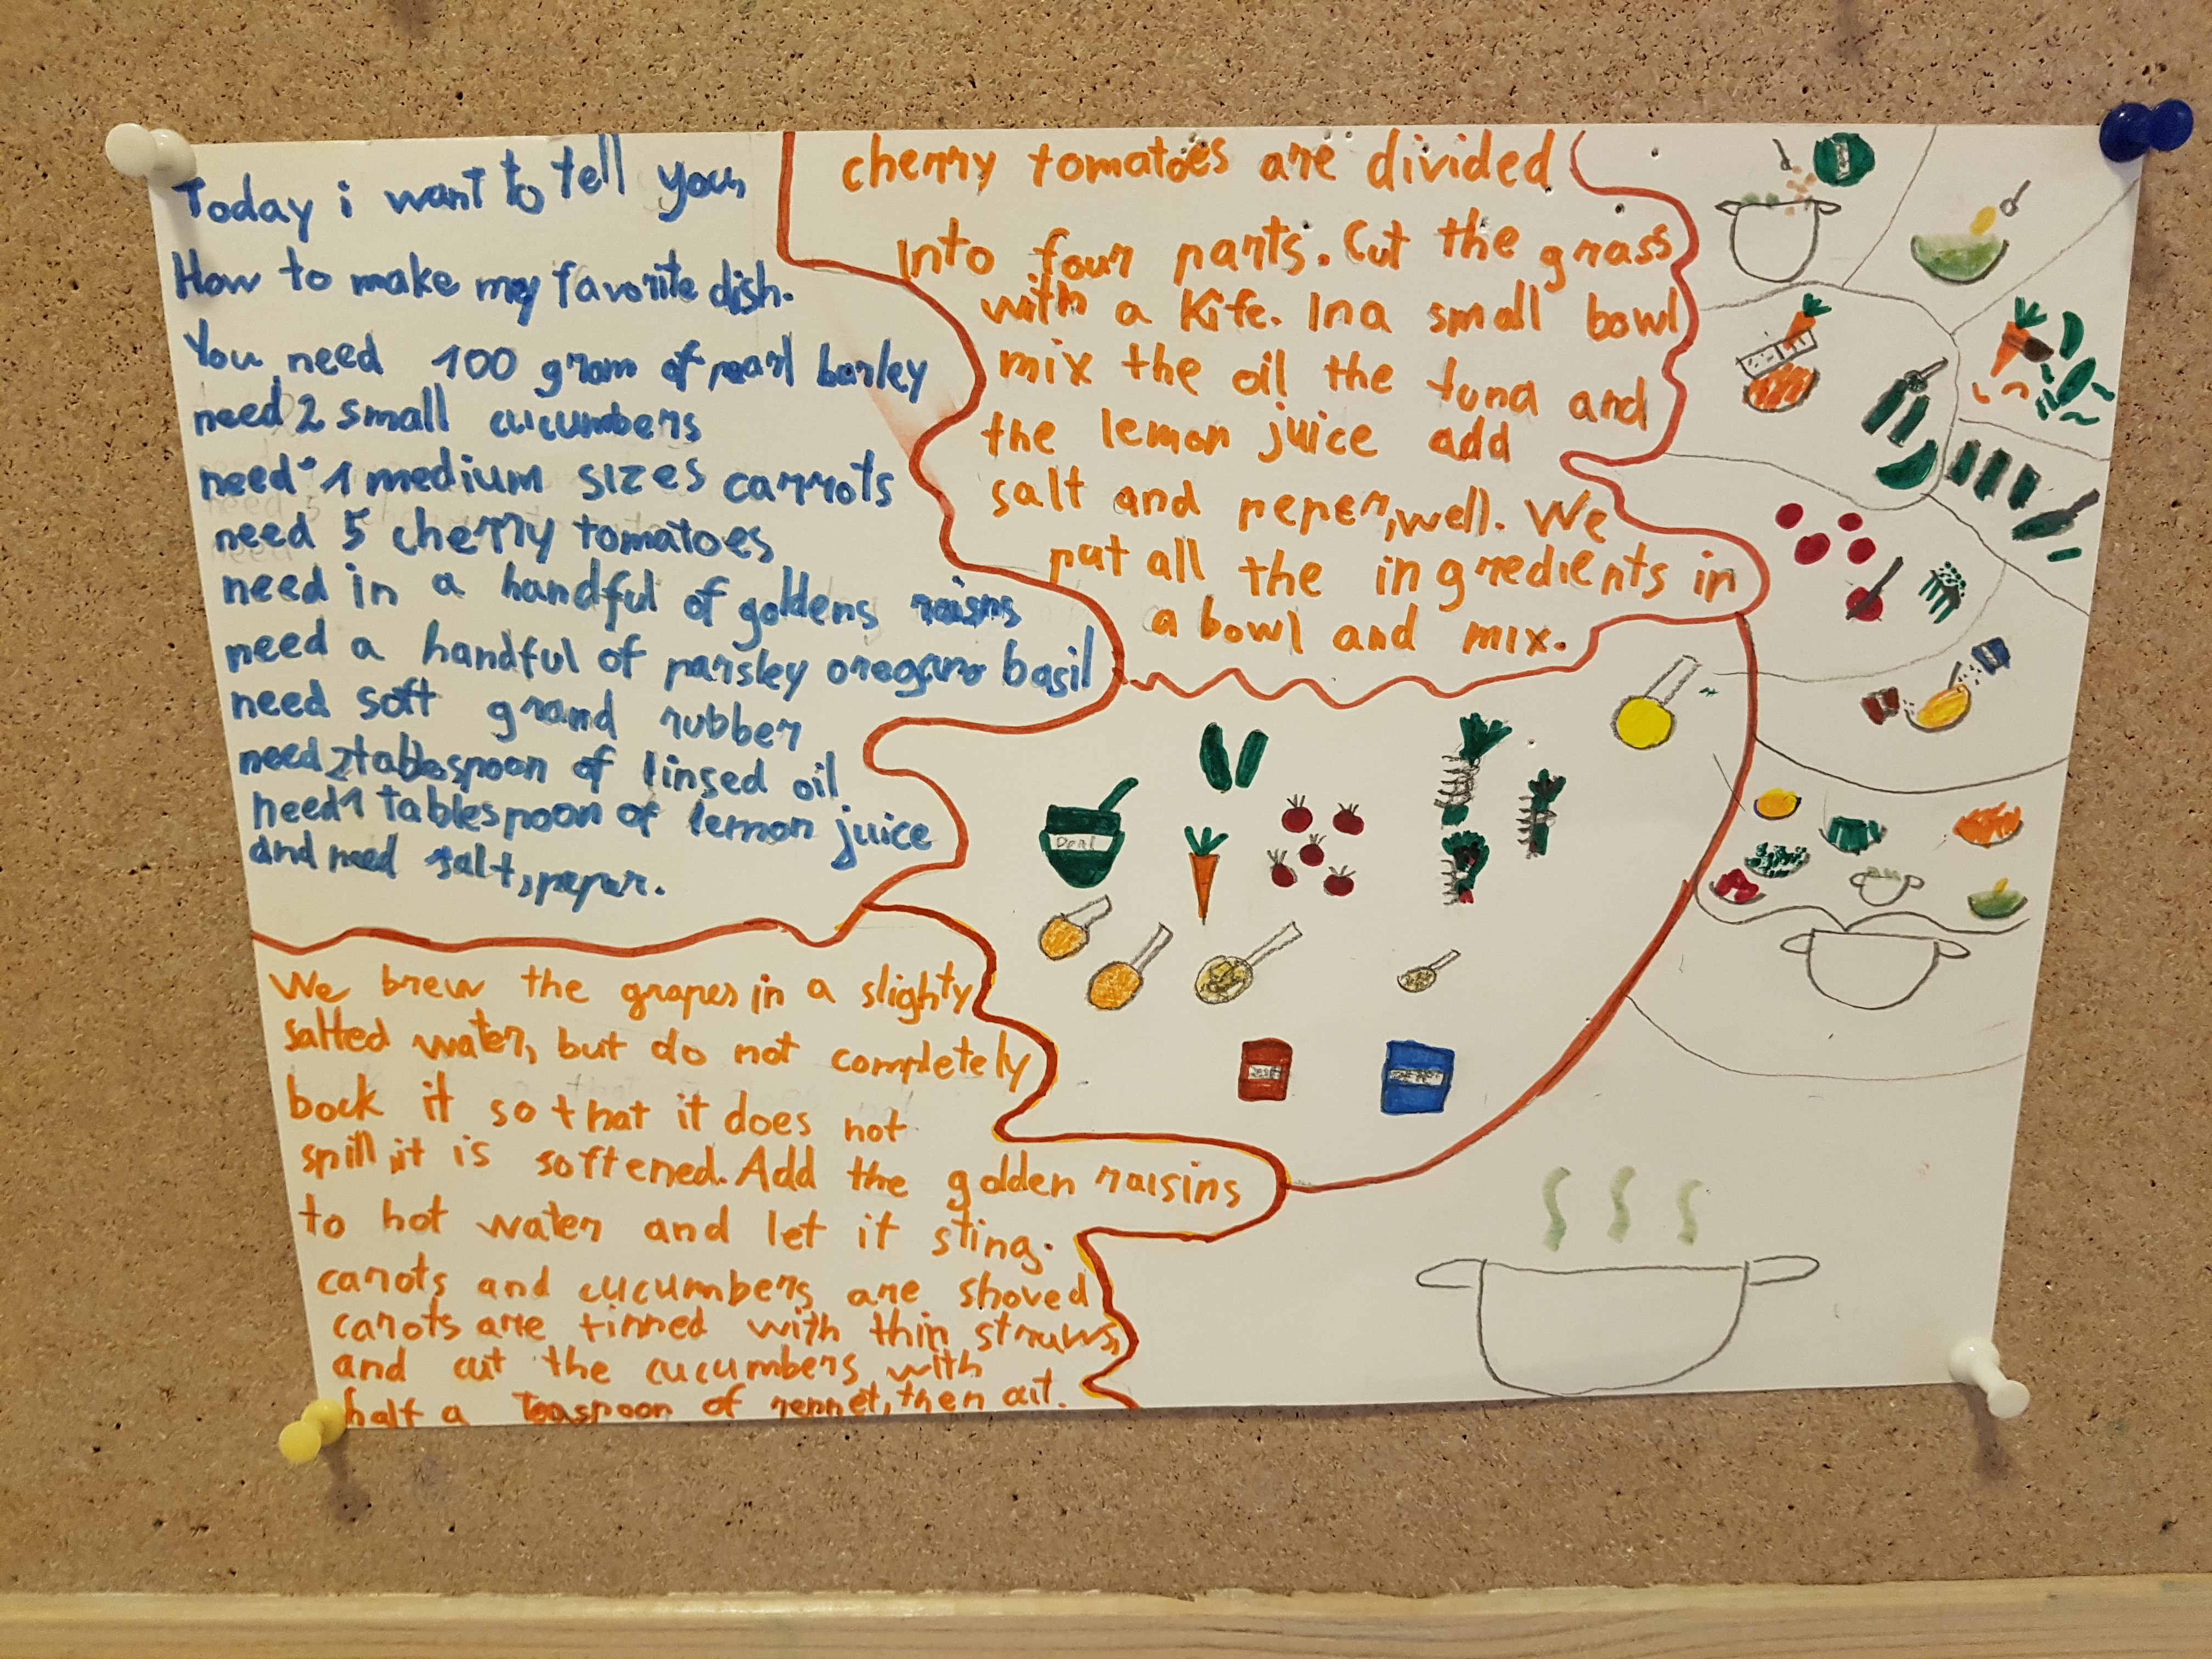 Today i want to tell you
How to make my favorite dish.
You need 100 gram of pearl barley
need 2 small cucumbers
need 1 medium sizes carrots
need 5 cherry tomatoes
need in a handful of goldens raisns
need a handful of parsley oregano basil
need soft grand rubber
need 2 tablespoon of linsed oil
need 1 tablespoon of lemon juice
and need salt, peper.
We brew the grapes in a slighty
salted water, but do not completely
bock it so that it does not
spill it is softened. Add the golden raisins
to hot water and let it sting.
carots and cucumbers are shoved
carots are tinned with thin straws,
and cut the cucumbers with
half a teaspoon of rennet, then
cherry tomatoes are divided
into four parts. Cut the grass
with a kife. In a small bowl
mix the oil the tuna and
the lemon juice add
salt and peper, well. We
put all the ingredients in
a bowl and mix.